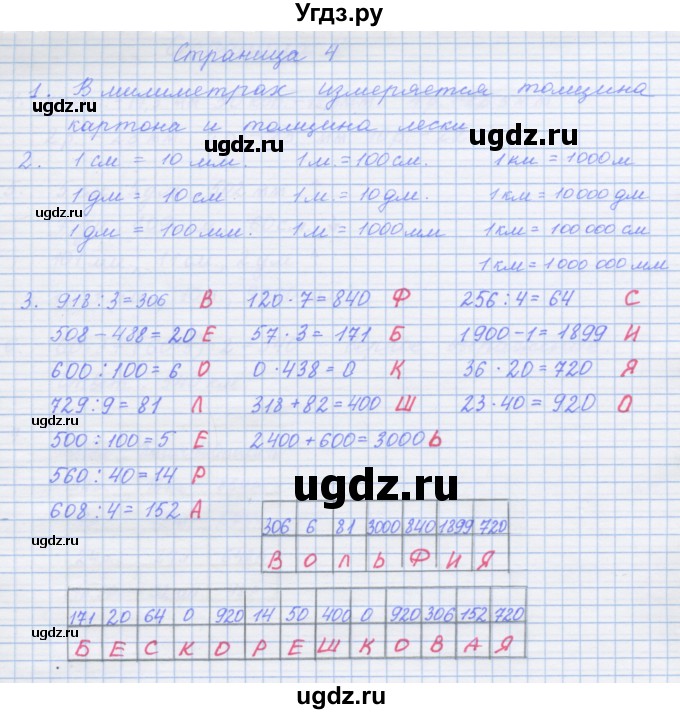 Угдз.ру
Страница 4
1. В милиметрах измеряется толщина
картона и толщина лески.
2. 1 см = 10 мм. 1 м = 100 см. 1 км = 1000 м
1 дм = 10 см. 1 м = 10 дм. 1 км = 10000 дм
1 дм = 100 мм. 1 м = 1000 мм 1 км = 100 000 см
1 км = 1000 000 мм
3. 918 : 3 = 306 В 120 · 7 = 840 Ф 256 : 4 = 64 С
508 - 488 = 20 Е 57 · 3 = 171 Б 1900 - 1 = 1899 И
600 : 100 = 6 О 0 · 438 = 0 К 36 · 20 = 720 Я
729 : 9 = 81 Л 318 + 82 = 400 Ш 23 · 40 = 920 О
500 : 100 = 5 Е 2400 + 600 = 3000 Ь
560 : 40 = 14 Р
608 : 4 = 152 А
306 6 81 3000 840 1899 720
В О Л Ь Ф И Я
171 20 64 0 920 14 50 400 0 920 306 152 720
Б Е С К О Р Е Ш К О В А Я
ugdz.ru
ugdz.ru
ugdz.ru
ugdz.ru
ugdz.ru
ugdz.ru
ugdz.ru
ugdz.ru
ugdz.ru
ugdz.ru
ugdz.ru
ugdz.ru